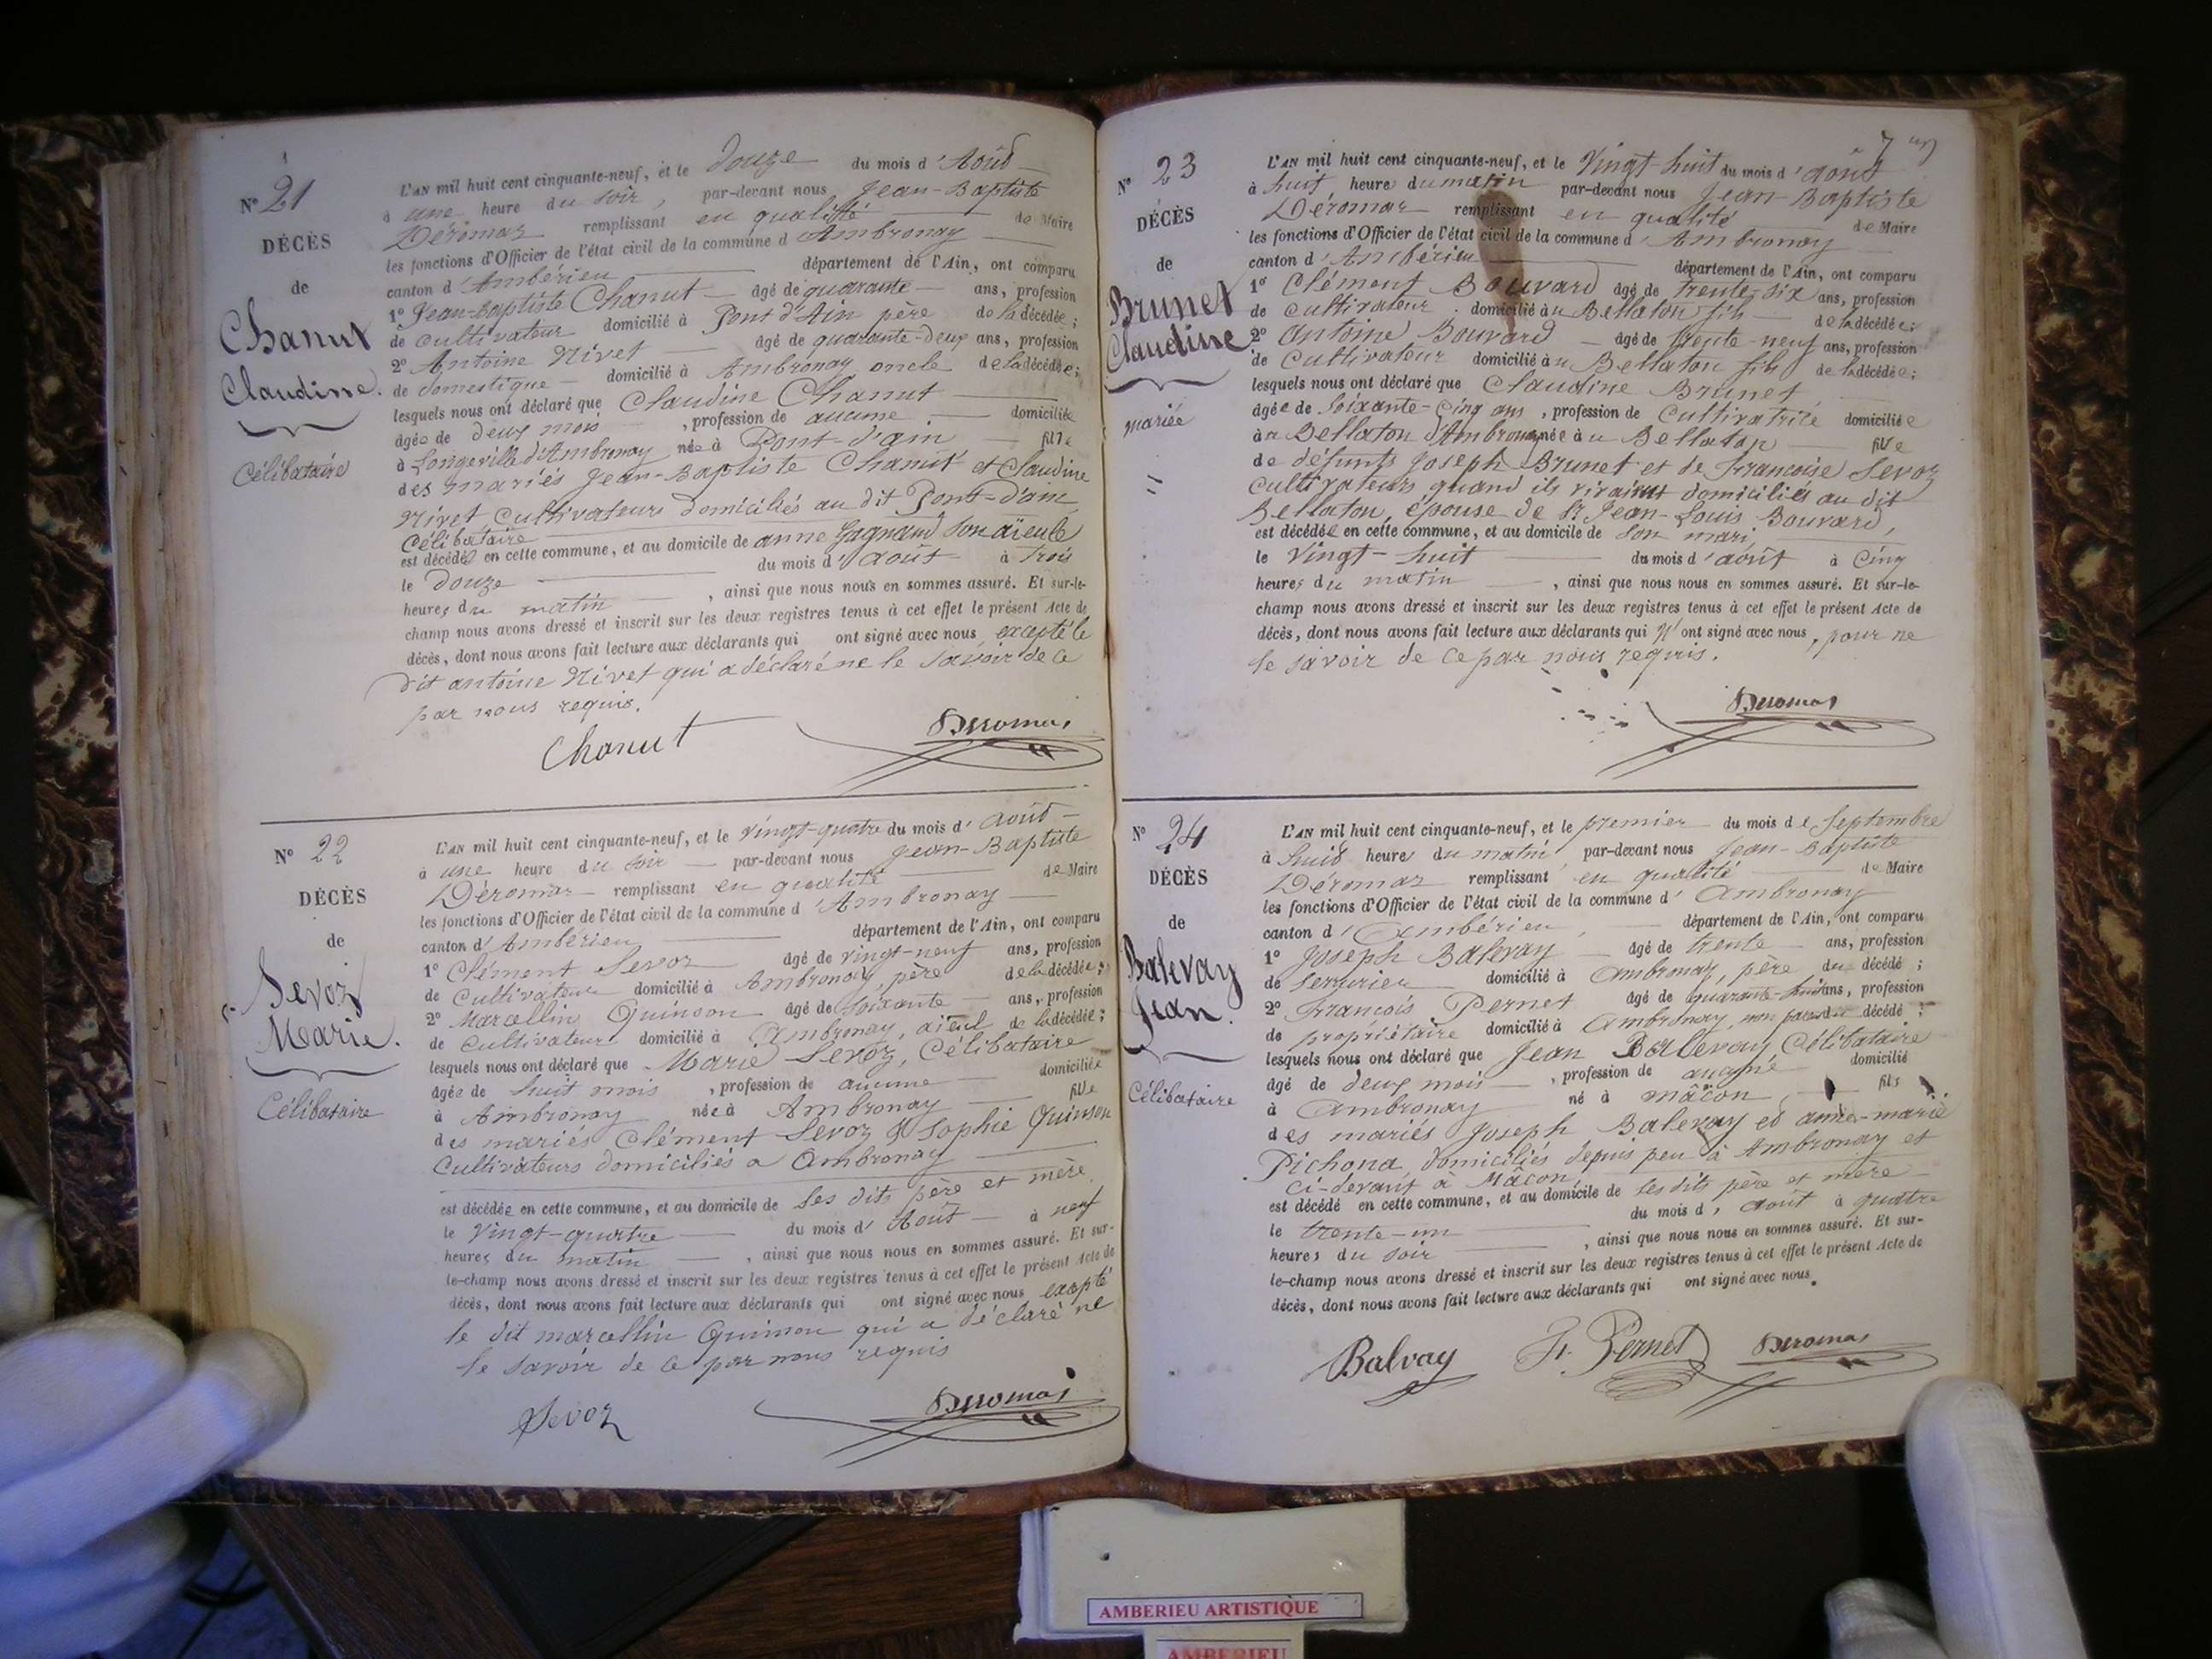 N° 21
DÉCÈS
de
Chanut
Claudine.
Célibataire
L'AN mil huit cent cinquante-neuf, et le douze du mois d'Août
à une heure du soir, par-devant nous Jean-Baptiste
Déromas remplissant en qualité de Maire
les fonctions d'Officier de l'état civil de la commune d'Ambronay
canton d'Ambérieu département de l'Ain, ont comparu
1° Jean-Baptiste Chanut âgé de quarante ans, profession
de cultivateur domicilié à Pont d'Ain père de la décédée;
2° Antoine Nivet âgé de quarante-deux ans, profession
de domestique domicilié à Ambronay oncle de la décédée;
lesquels nous ont déclaré que Claudine Chanut
âgée de deux mois, profession de aucune domiciliée
à Longeville d'Ambronay née à Pont-d'ain fille
des mariés Jean-Baptiste Chanut et Claudine
Nivet cultivateurs domiciliés au dit Pont-d'ain
Célibataire
est décédée en cette commune, et au domicile de anne Gagnand son aïeule
le douze du mois d'août à trois
heures du matin, ainsi que nous nous en sommes assuré. Et sur-le-
champ nous avons dressé et inscrit sur les deux registres tenus à cet effet le présent Acte de
décès, dont nous avons fait lecture aux déclarants qui ont signé avec nous excepté le
dit antoine Nivet qui a déclaré ne le savoir de ce
par nous requis.
Chanut Deromas
N° 22
DÉCÈS
de
Sevoz
Marie.
Célibataire
L'AN mil huit cent cinquante-neuf, et le vingt-quatre du mois d'août
à une heure du soir par-devant nous Jean-Baptiste
Déromas remplissant en qualité de Maire
les fonctions d'Officier de l'état civil de la commune d'Ambronay
canton d'Ambérieu département de l'Ain, ont comparu
1° Clément Sevoz âgé de vingt-neuf ans, profession
de Cultivateur domicilié à Ambronay, père de la décédée;
2° Marcellin Quinson âgé de soixante ans, profession
de cultivateur domicilié à Ambronay, aïeul de la décédée;
lesquels nous ont déclaré que Marie Sevoz, Célibataire
âgée de huit mois, profession de aucune domiciliée
à Ambronay née à Ambronay fille
des mariés Clément Sevoz & Sophie Quinson
Cultivateurs domiciliés à Ambronay
est décédée en cette commune, et au domicile de ses dits père et mère
le vingt-quatre du mois d'Août à neuf
heures du matin, ainsi que nous nous en sommes assuré. Et sur-
le-champ nous avons dressé et inscrit sur les deux registres tenus à cet effet le présent Acte de
décès, dont nous avons fait lecture aux déclarants qui ont signé avec nous excepté
le dit marcellin Quinson qui a déclaré ne
le savoir de ce par nous requis
Sevoz Deromas
N° 23
DÉCÈS
de
Brunet
Claudine
mariée
L'AN mil huit cent cinquante-neuf, et le Vingt-huit du mois d'août
à huit heure du matin par-devant nous Jean-Baptiste
Déromas remplissant en qualité de Maire
les fonctions d'Officier de l'état civil de la commune d'Ambronay
canton d'Ambérieu département de l'Ain, ont comparu
1° Clément Bouvard âgé de trente-six ans, profession
de cultivateur domicilié à u Bellaton fils de la décédée;
2° antoine Bouvard âgé de trente-neuf ans, profession
de Cultivateur domicilié à u Bellaton fils de la décédée;
lesquels nous ont déclaré que Claudine Brunet
âgée de soixante-cinq ans, profession de Cultivatrice domiciliée
à u Bellaton d'Ambronay née à u Bellaton fille
de défunts Joseph Brunet et de Françoise Sevoz
Cultivateurs quand ils vivaient domiciliés au dit
Bellaton, épouse de Sr Jean-Louis Bouvard,
est décédée en cette commune, et au domicile de son mari,
le Vingt-huit du mois d'août à Cinq
heures du matin, ainsi que nous nous en sommes assuré. Et sur-le-
champ nous avons dressé et inscrit sur les deux registres tenus à cet effet le présent Acte de
décès, dont nous avons fait lecture aux déclarants qui n'ont signé avec nous, pour ne
le savoir de ce par nous requis.
Deromas
N° 24
DÉCÈS
de
Balevay
Jean.
Célibataire
L'AN mil huit cent cinquante-neuf, et le premier du mois de Septembre
à huit heures du matin par-devant nous Jean-Baptiste
Déromas remplissant en qualité de Maire
les fonctions d'Officier de l'état civil de la commune d'Ambronay
canton d'Ambérieu, département de l'Ain, ont comparu
1° Joseph Balevay âgé de trente ans, profession
de serrurier domicilié à Ambronay, père du décédé;
2° François Pernet âgé de quarante-huit ans, profession
de propriétaire domicilié à Ambronay, non parent du décédé;
lesquels nous ont déclaré que Jean Balevay, Célibataire
âgé de deux mois, profession de aucune domicilié
à Ambronay né à mâcon, fils
des mariés Joseph Balevay et anne-marie
Pichona, domiciliés depuis peu à Ambronay et
ci-devant à Mâcon,
est décédé en cette commune, et au domicile de ses dits père et mère
le trente-un du mois d'août à quatre
heures du soir, ainsi que nous nous en sommes assuré. Et sur-
le-champ nous avons dressé et inscrit sur les deux registres tenus à cet effet le présent Acte de
décès, dont nous avons fait lecture aux déclarants qui ont signé avec nous.
Balvay Fr. Pernet Deromas
AMBERIEU ARTISTIQUE
AMBERIEU